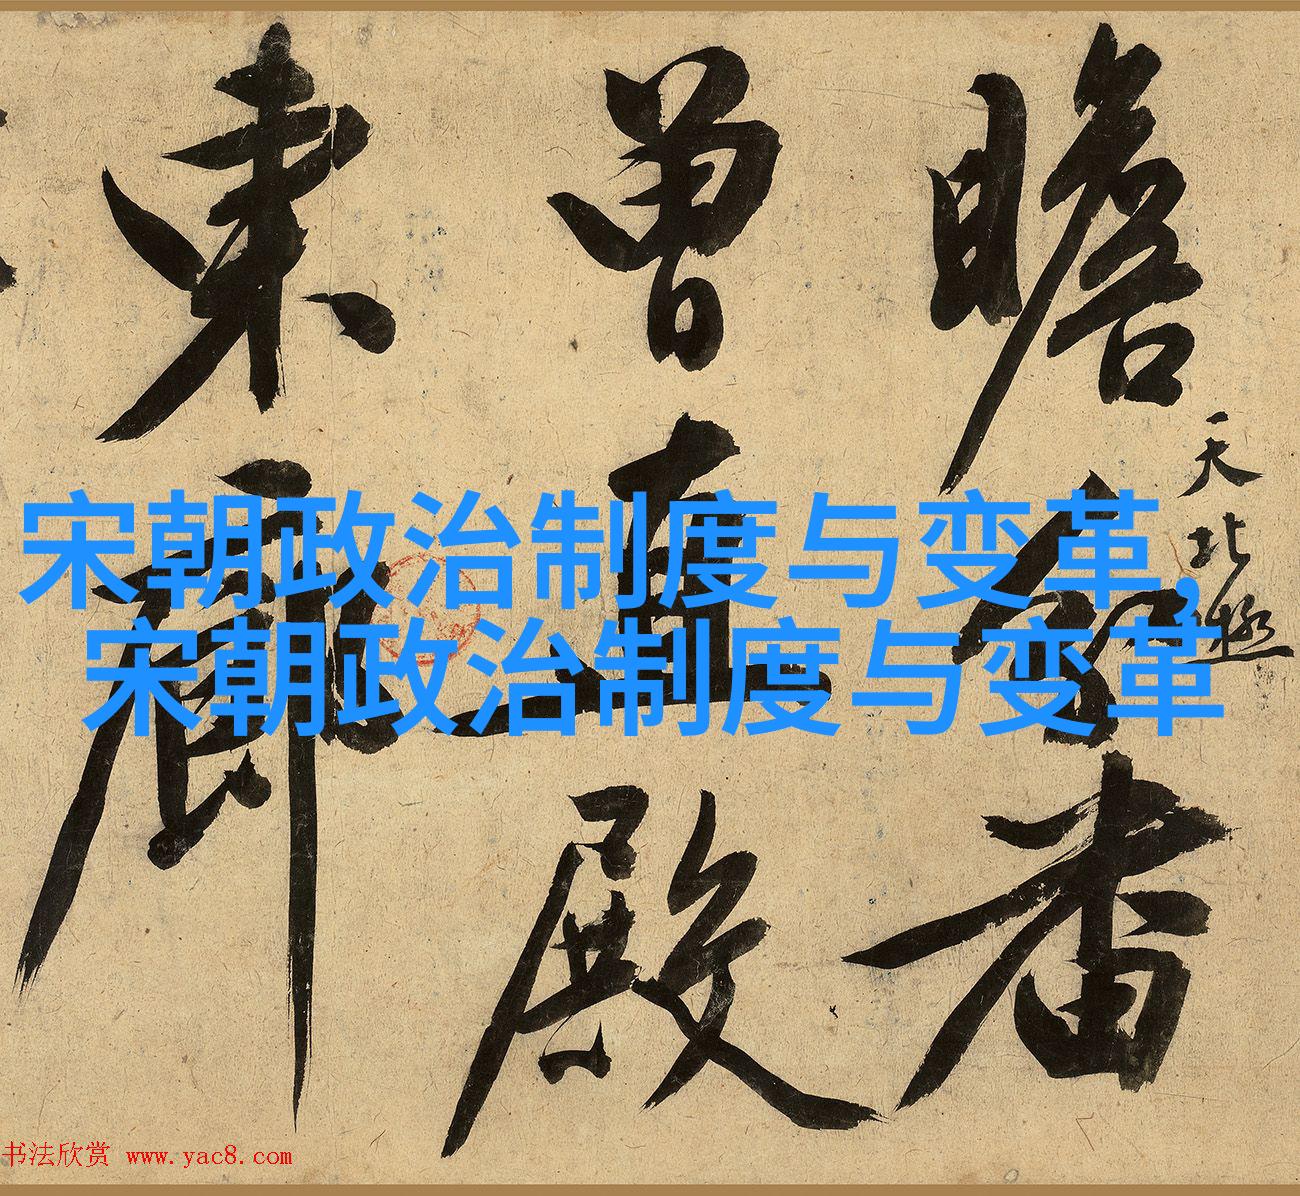 瞻
天北極
曾直殿
東廊
宋朝政治制度与变革,
宋朝政治制度与变革
书法欣赏 www.yac8.com